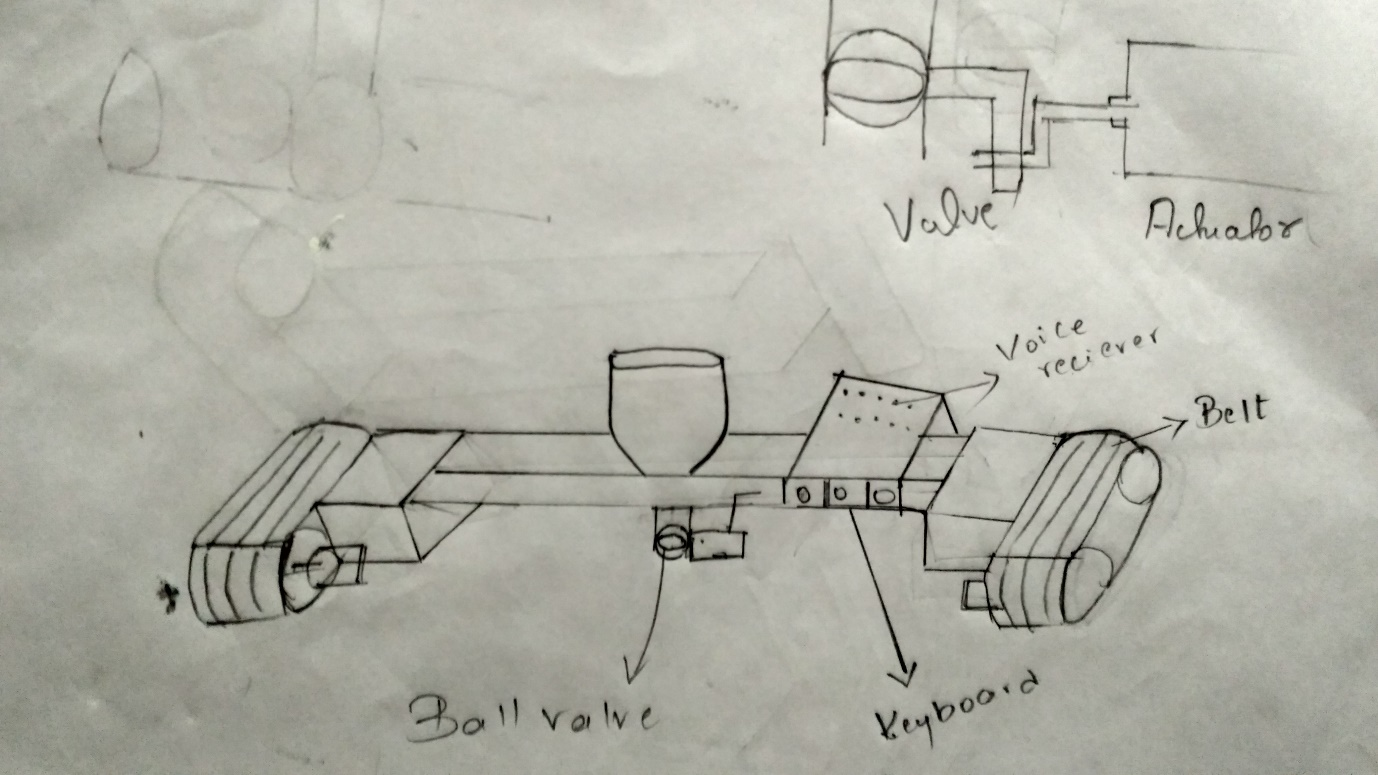 Valve
Actuator
Voice
reciever
Belt
Ball valve
Keyboard